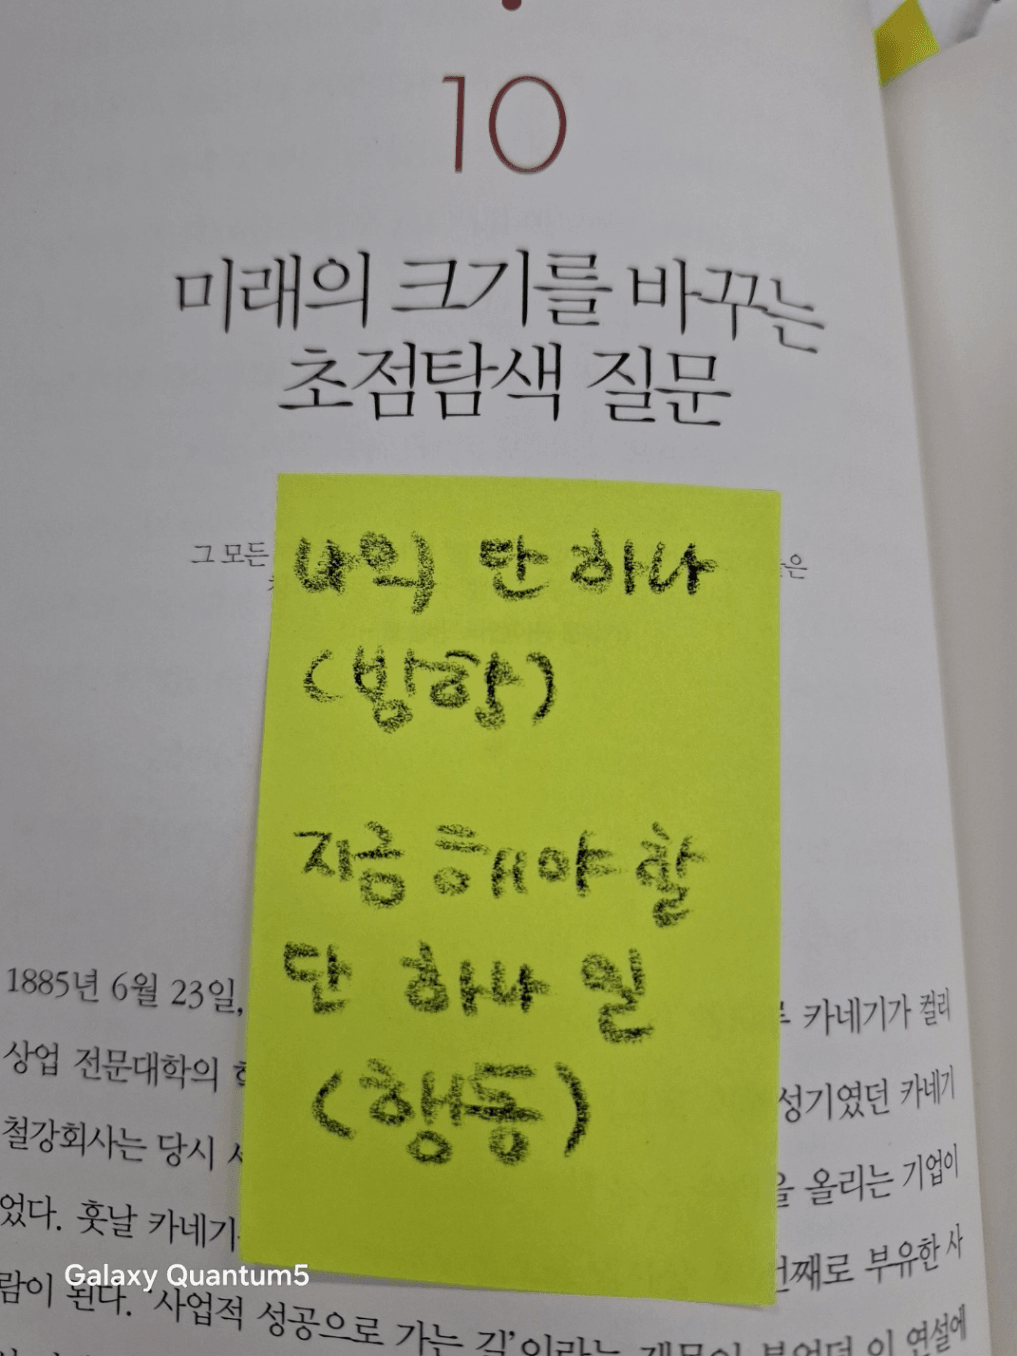 10
미래의 크기를 바꾸는
초점탐색 질문
그 모든
나의 단 하나
(방향)
지금 해야 할
단 하나 일
(행동)
1885년 6월 23일, 카네기가 컬리
상업 전문대학의 성기였던 카네기
철강회사는 당시 올리는 기업이
었다. 훗날 카네기 번째로 부유한 사
람이 된다. '사업적 성공으로 가는 길'이라는 제목이 붙었던 이 연설에
Galaxy Quantum5